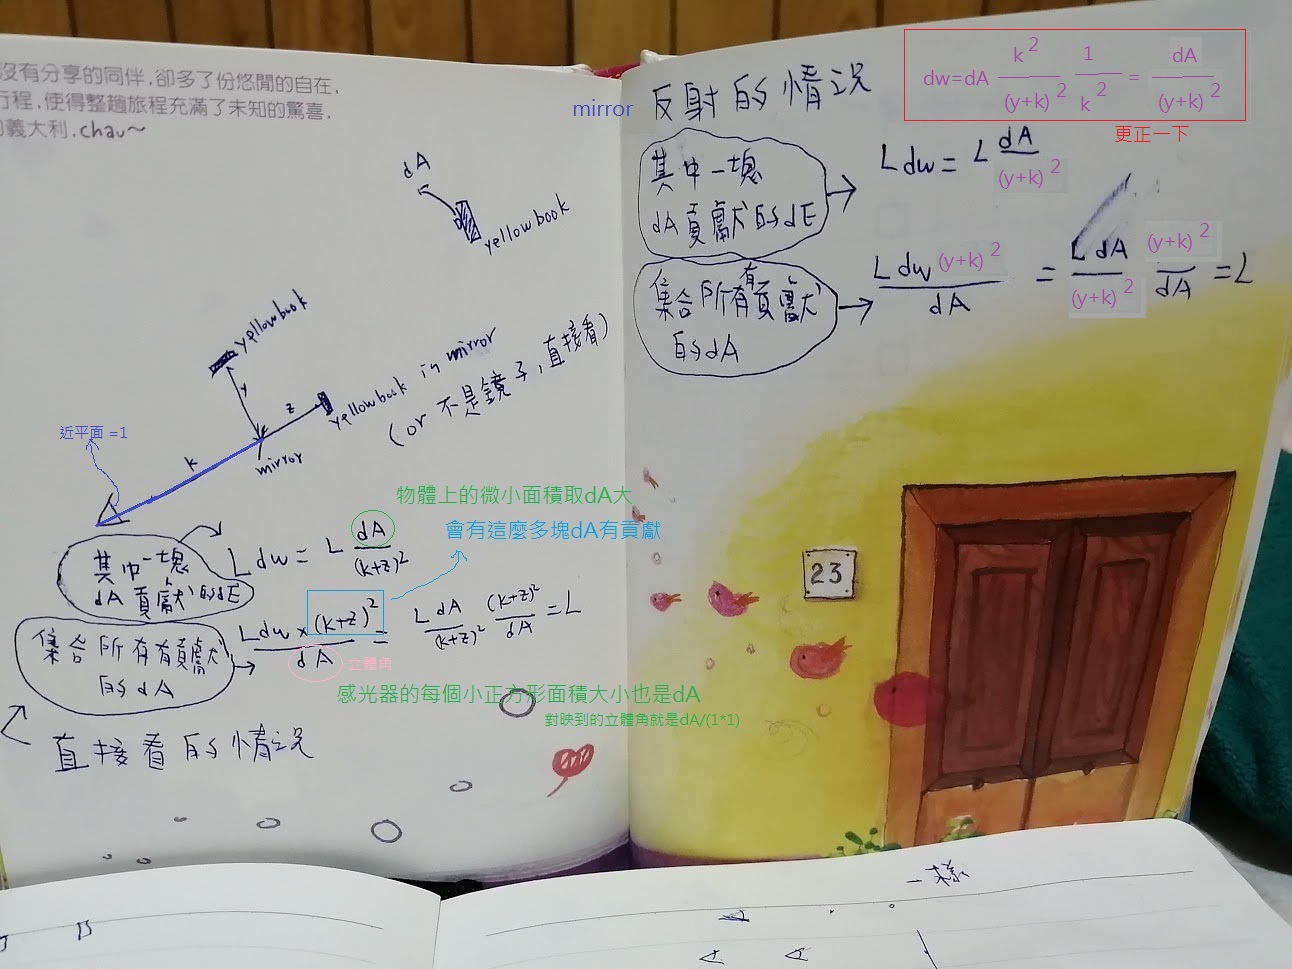 沒有分享的同伴，卻多了份悠閒的自在，
行程，使得整趟旅程充滿了未知的驚喜，
義大利，chau～
dA
yellow book
yellow book
y
z
yellow book in mirror
(or 不是鏡子，直接看)
mirror
k
近平面 =1
物體上的微小面積取dA大
會有這麼多塊dA有貢獻
其中一塊
dA 貢獻的dE
L dw = L dA/(k+z)²
集合所有有貢獻
的dA
L dw × (k+z)²/dA = L dA/(k+z)² (k+z)²/dA = L
立體角
感光器的每個小正方形面積大小也是dA
對映到的立體角就是dA/(1*1)
直接看的情況
mirror 反射的情況
dw=dA k²/(y+k)² 1/k² = dA/(y+k)²
更正一下
其中一塊
dA貢獻的dE
L dw = L dA/(y+k)²
集合所有有貢獻
的dA
L dw (y+k)²/dA = L dA/(y+k)² (y+k)²/dA = L
23
一樣